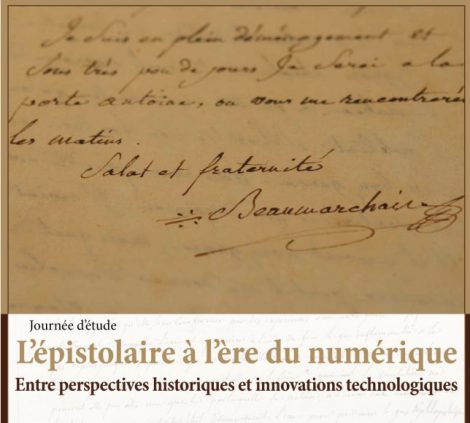 Je suis en plein déménagement et
sous très peu de jours Je serai a la
porte antoine, ou vous me rencontrerés
les matins.
Salut et fraternité
Beaumarchais
Journée d'étude
L'épistolaire à l'ère du numérique
Entre perspectives historiques et innovations technologiques